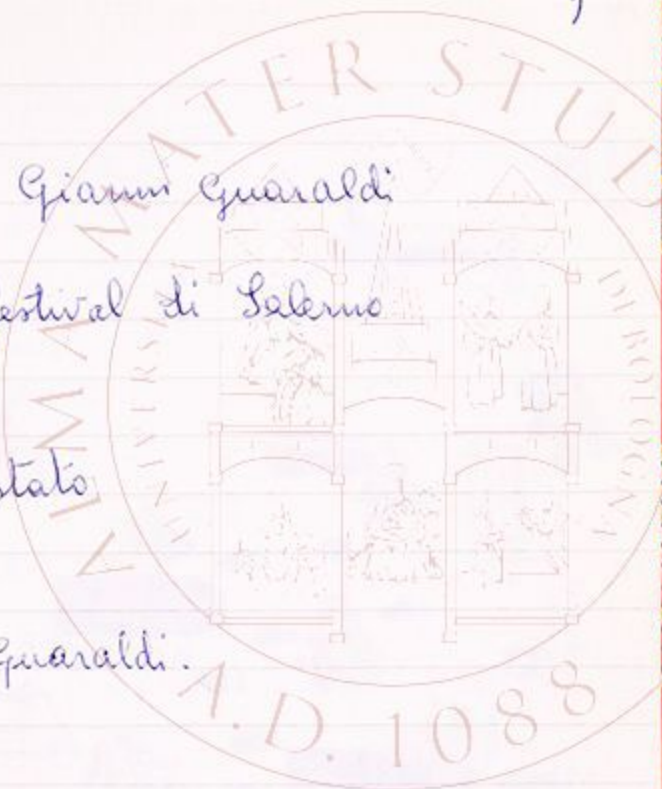 Gianni Guaraldi
estival di Salerno
stato
Guaraldi.
ALMA MATER STUD
UNIVERSI DI BOLOGNA
A.D. 1088